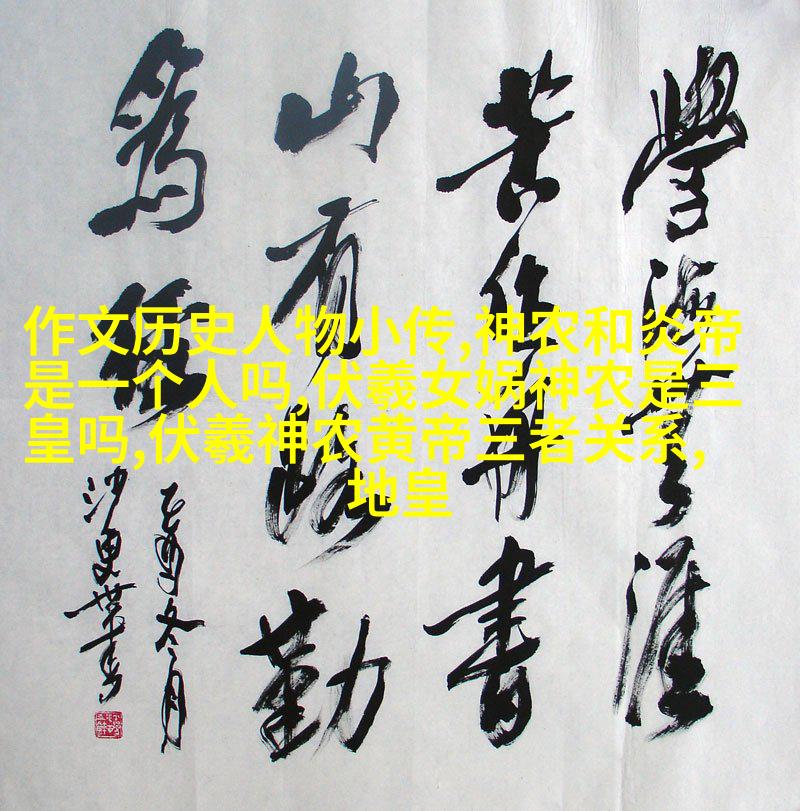 學海無涯
苦作舟書
山有路勤
為徑
乙酉冬月
作文历史人物小传,神农和炎帝
是一个人吗,伏羲女娲神农是三
皇吗,伏羲神农黄帝三者关系,
地皇